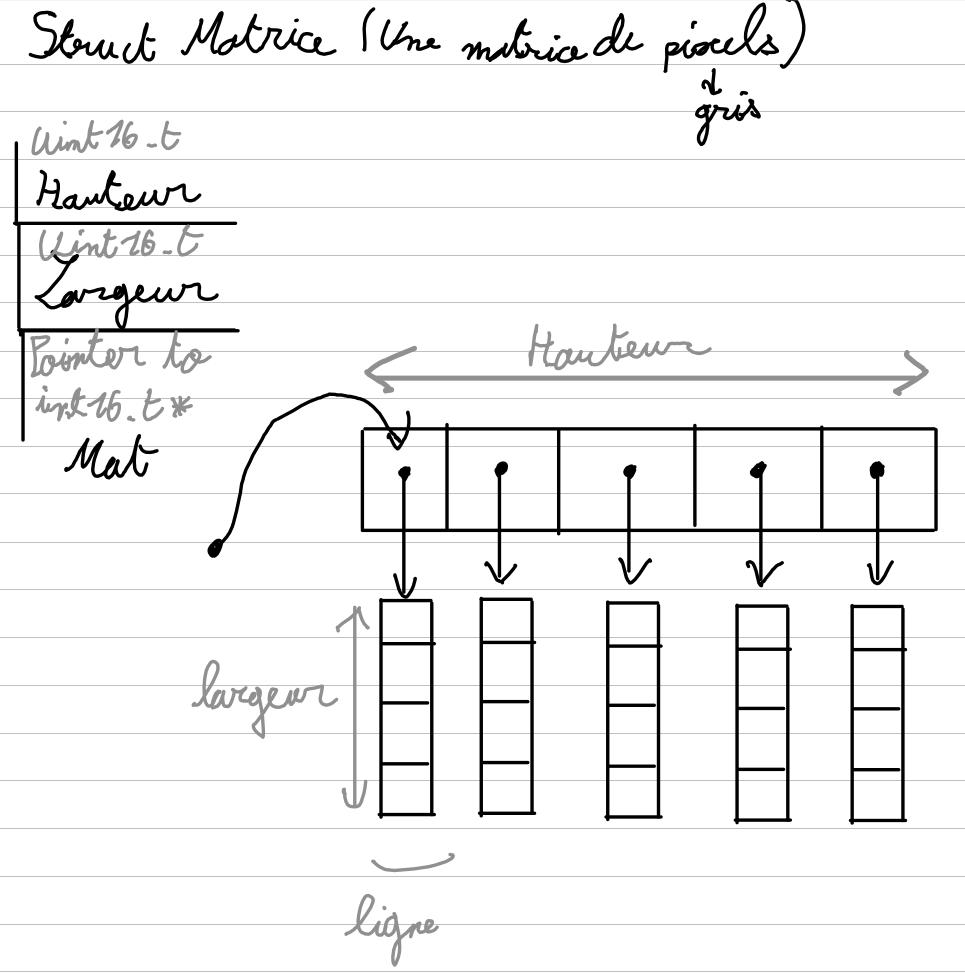 Struct Matrice (Une matrice de pixels)
gris
Uint16_t
Hauteur
Uint16_t
Largeur
Pointer to
int16_t*
Mat
Hauteur
largeur
ligne